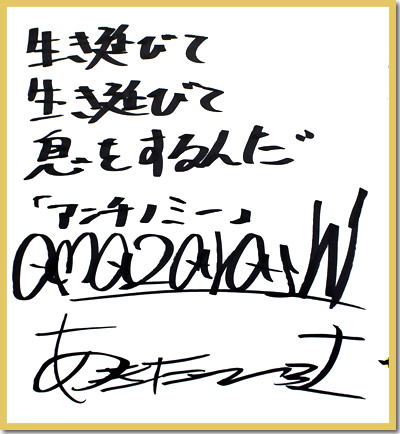 生き延びて
生き延びて
息をするんだ
「アンチノミー」
amazarashi